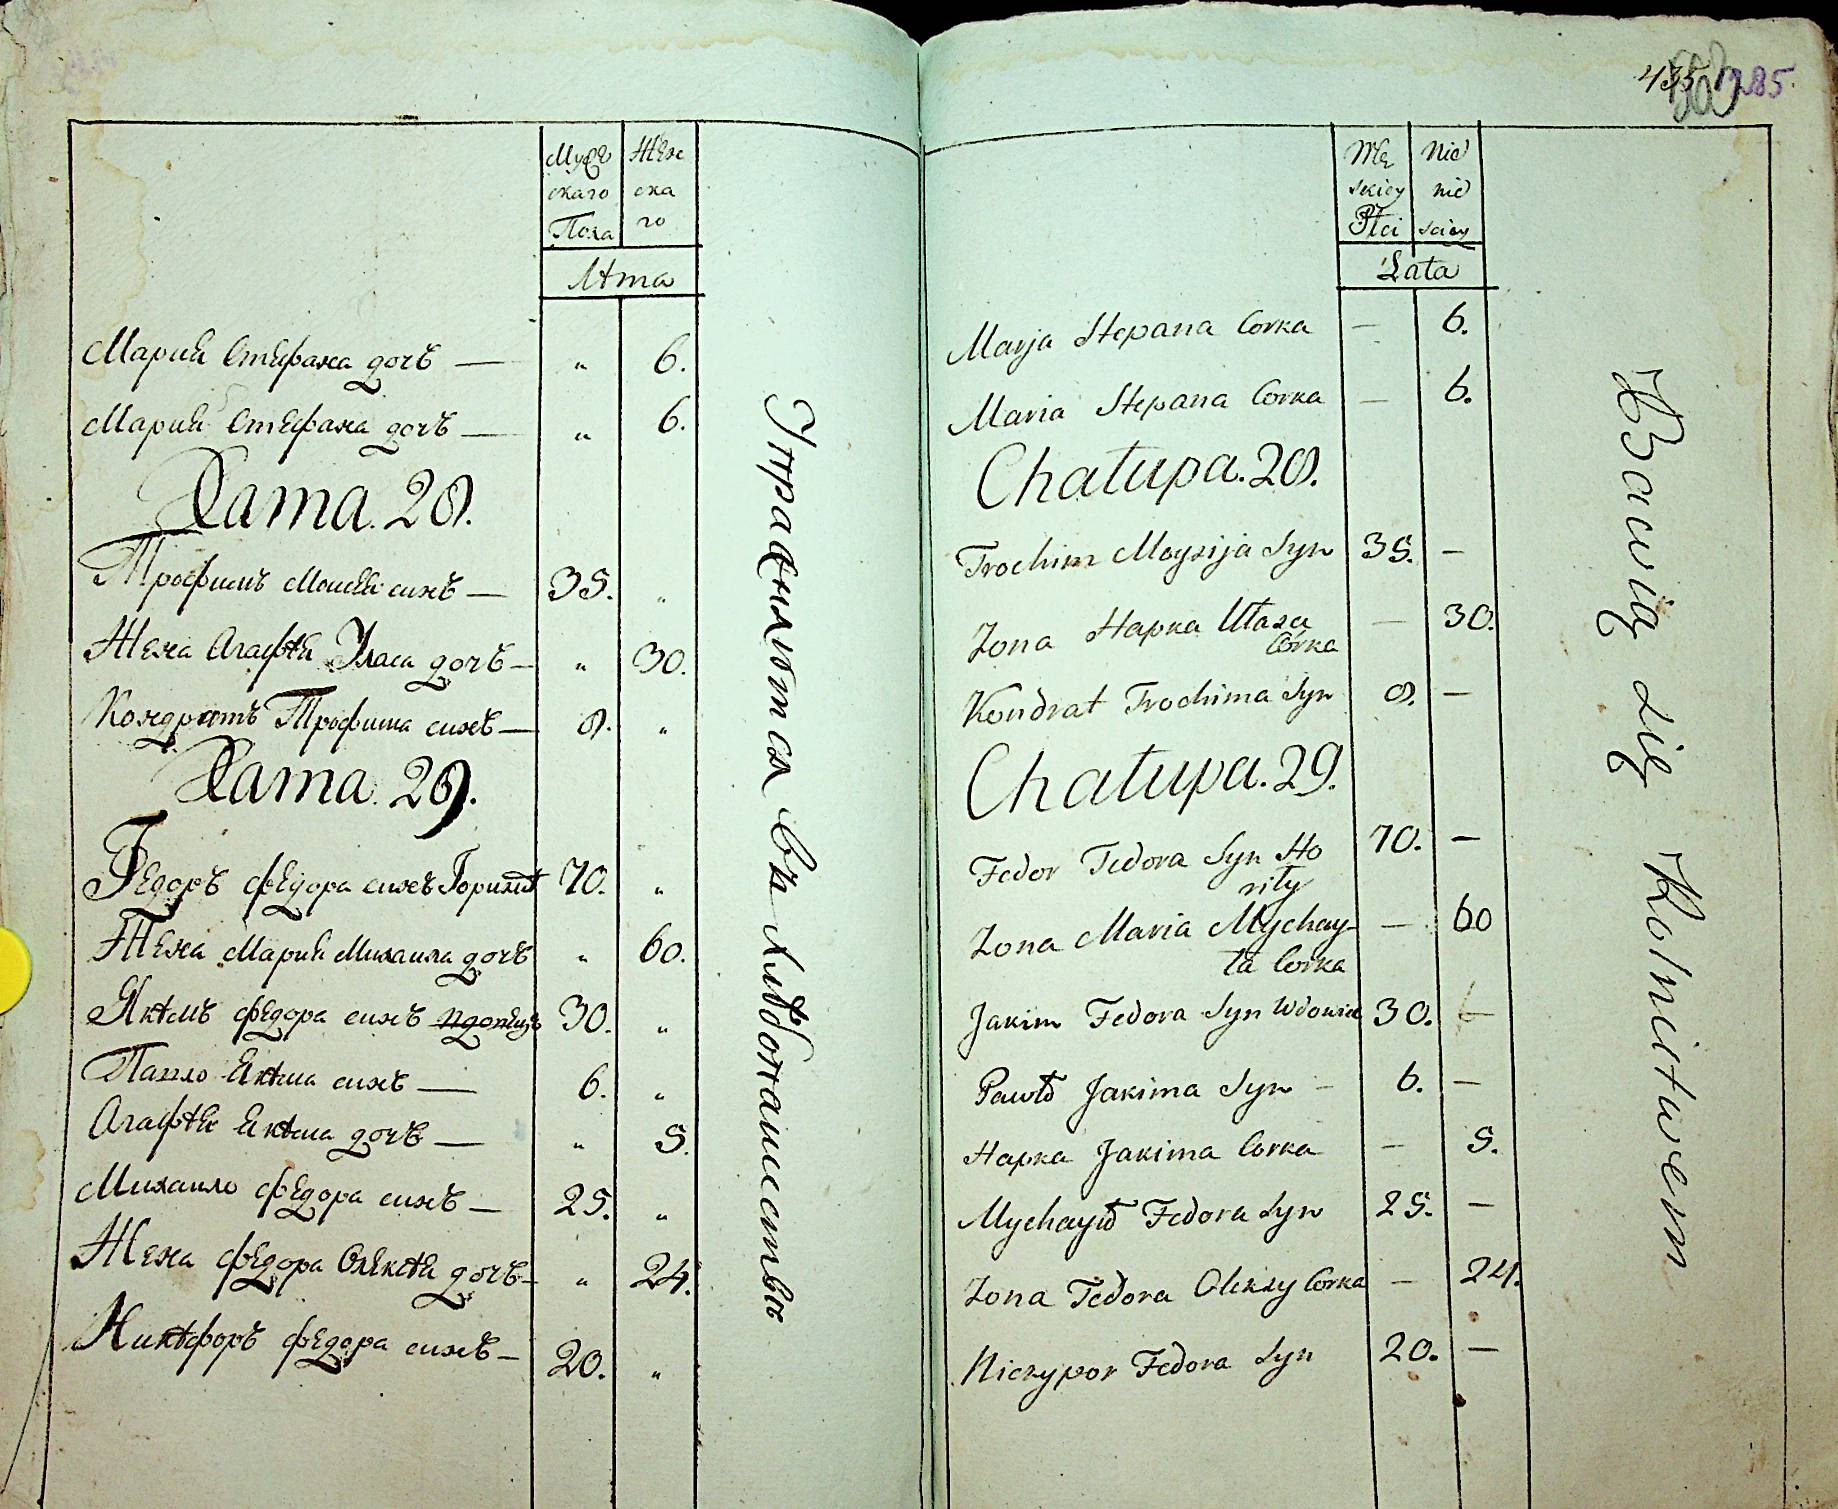 Муже Жен
скаго ска
Пола го
Лѣта
Мария Стефана дочь — „ 6.
Мария Стефана дочь — „ 6.
Хата. 28.
Трофимъ Моисея синъ — 35. „
Жена Агафія Уласа дочь — „ 30.
Кондратъ Трофима синъ — 8. „
Хата. 29.
Федоръ Федора синъ Горилѣ 70. „
Жена Мария Михаила дочь „ 60.
Якѣмъ Федора синъ 30. „
Павло Якѣма синъ — 6. „
Агафія Якѣма дочь — „ 5.
Михаило Федора синъ — 25. „
Жена Федора Олексѣя дочь — „ 24.
Никѣфоръ Федора синъ — 20. „
Упражняются въ хлѣбопашествѣ
435 285.
Mę Nie
skiey nie
Płci sciey
Lata
Marja Stepana Corka — 6.
Maria Stepana Corka — 6.
Chatupa. 28.
Trochim Moysija Syn 35. —
Zona Hapka Ułasa — 30.
Córka
Kondrat Trochima Syn 8. —
Chatupa. 29.
Fedor Fedora Syn Ho 70. —
riły
Zona Maria Mychay- — 60
ła Corka
Jakim Fedora Syn Wdowiec 30. —
Pawło Jakima Syn — 6. —
Hapka Jakima Corka — 5.
Mychayło Fedora Syn 25. —
Zona Fedora Olexy Corka — 24.
Niczypor Fedora Syn 20. —
Bawią się Rolnictwem